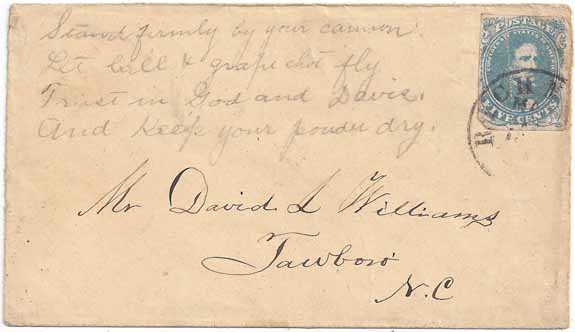 Stand firmly by your cannon.
Let ball & grape shot fly
Trust in God and Davis.
And Keep your powder dry.
POSTAGE
CONFEDERATE STATES OF AMERICA
FIVE CENTS
Mr David L Williams
Tawboro
N.C